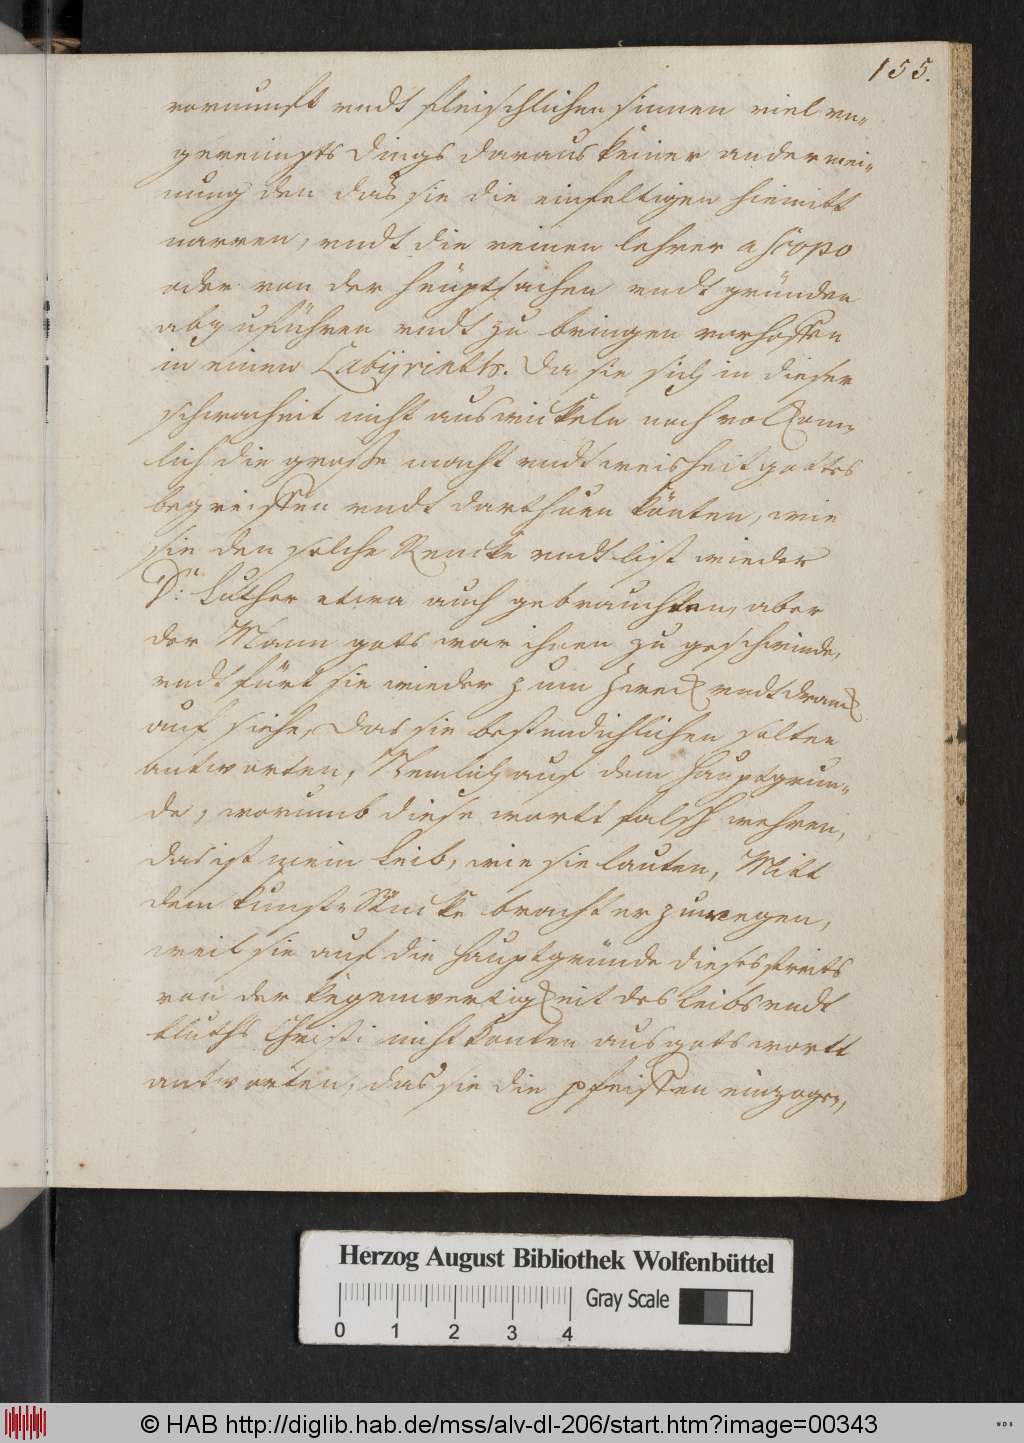 155.
vornunft vndt fleischlichen sinnen viel vn-
gereimpts dings daraus keiner ander mei-
nung den das sie die einfeltigen hiemitt
narren, vndt die reinen lehrer a scopo
oder von der heuptsachen vndt gründen
abzuführen vndt zu bringen verhoffen
in einen Labÿrinth. Da sie sich in dieser
schwacheit nicht auswickeln noch volkom-
lich die grosse macht vndt weisheit gottes
begreiffen vndt darthuen könten, wie
sie den solche Rencke vndt list wieder
D: Luther etwa auch gebrauchten, aber
der Mann gots war ihnen zu geschwinde,
vndt fürt sie wieder zum zweck vndt drang
auf siehe, das sie bestendichlichen solten
antworten, Nemlich auf dem hauptgrun-
de, worumb diese wortt falsch wehren,
das ist mein Leib, wie sie lauten, Mitt
dem kunst Stücke bracht er zuwegen,
weil sie auf die hauptgründe dieses streits
von der kegenwertigkeit des leibs vndt
bluths Christi nicht konten aus gots wortt
antworten, das sie die pfeiffen einzogen,
Herzog August Bibliothek Wolfenbüttel
Gray Scale
0 1 2 3 4
© HAB http://diglib.hab.de/mss/alv-dl-206/start.htm?image=00343